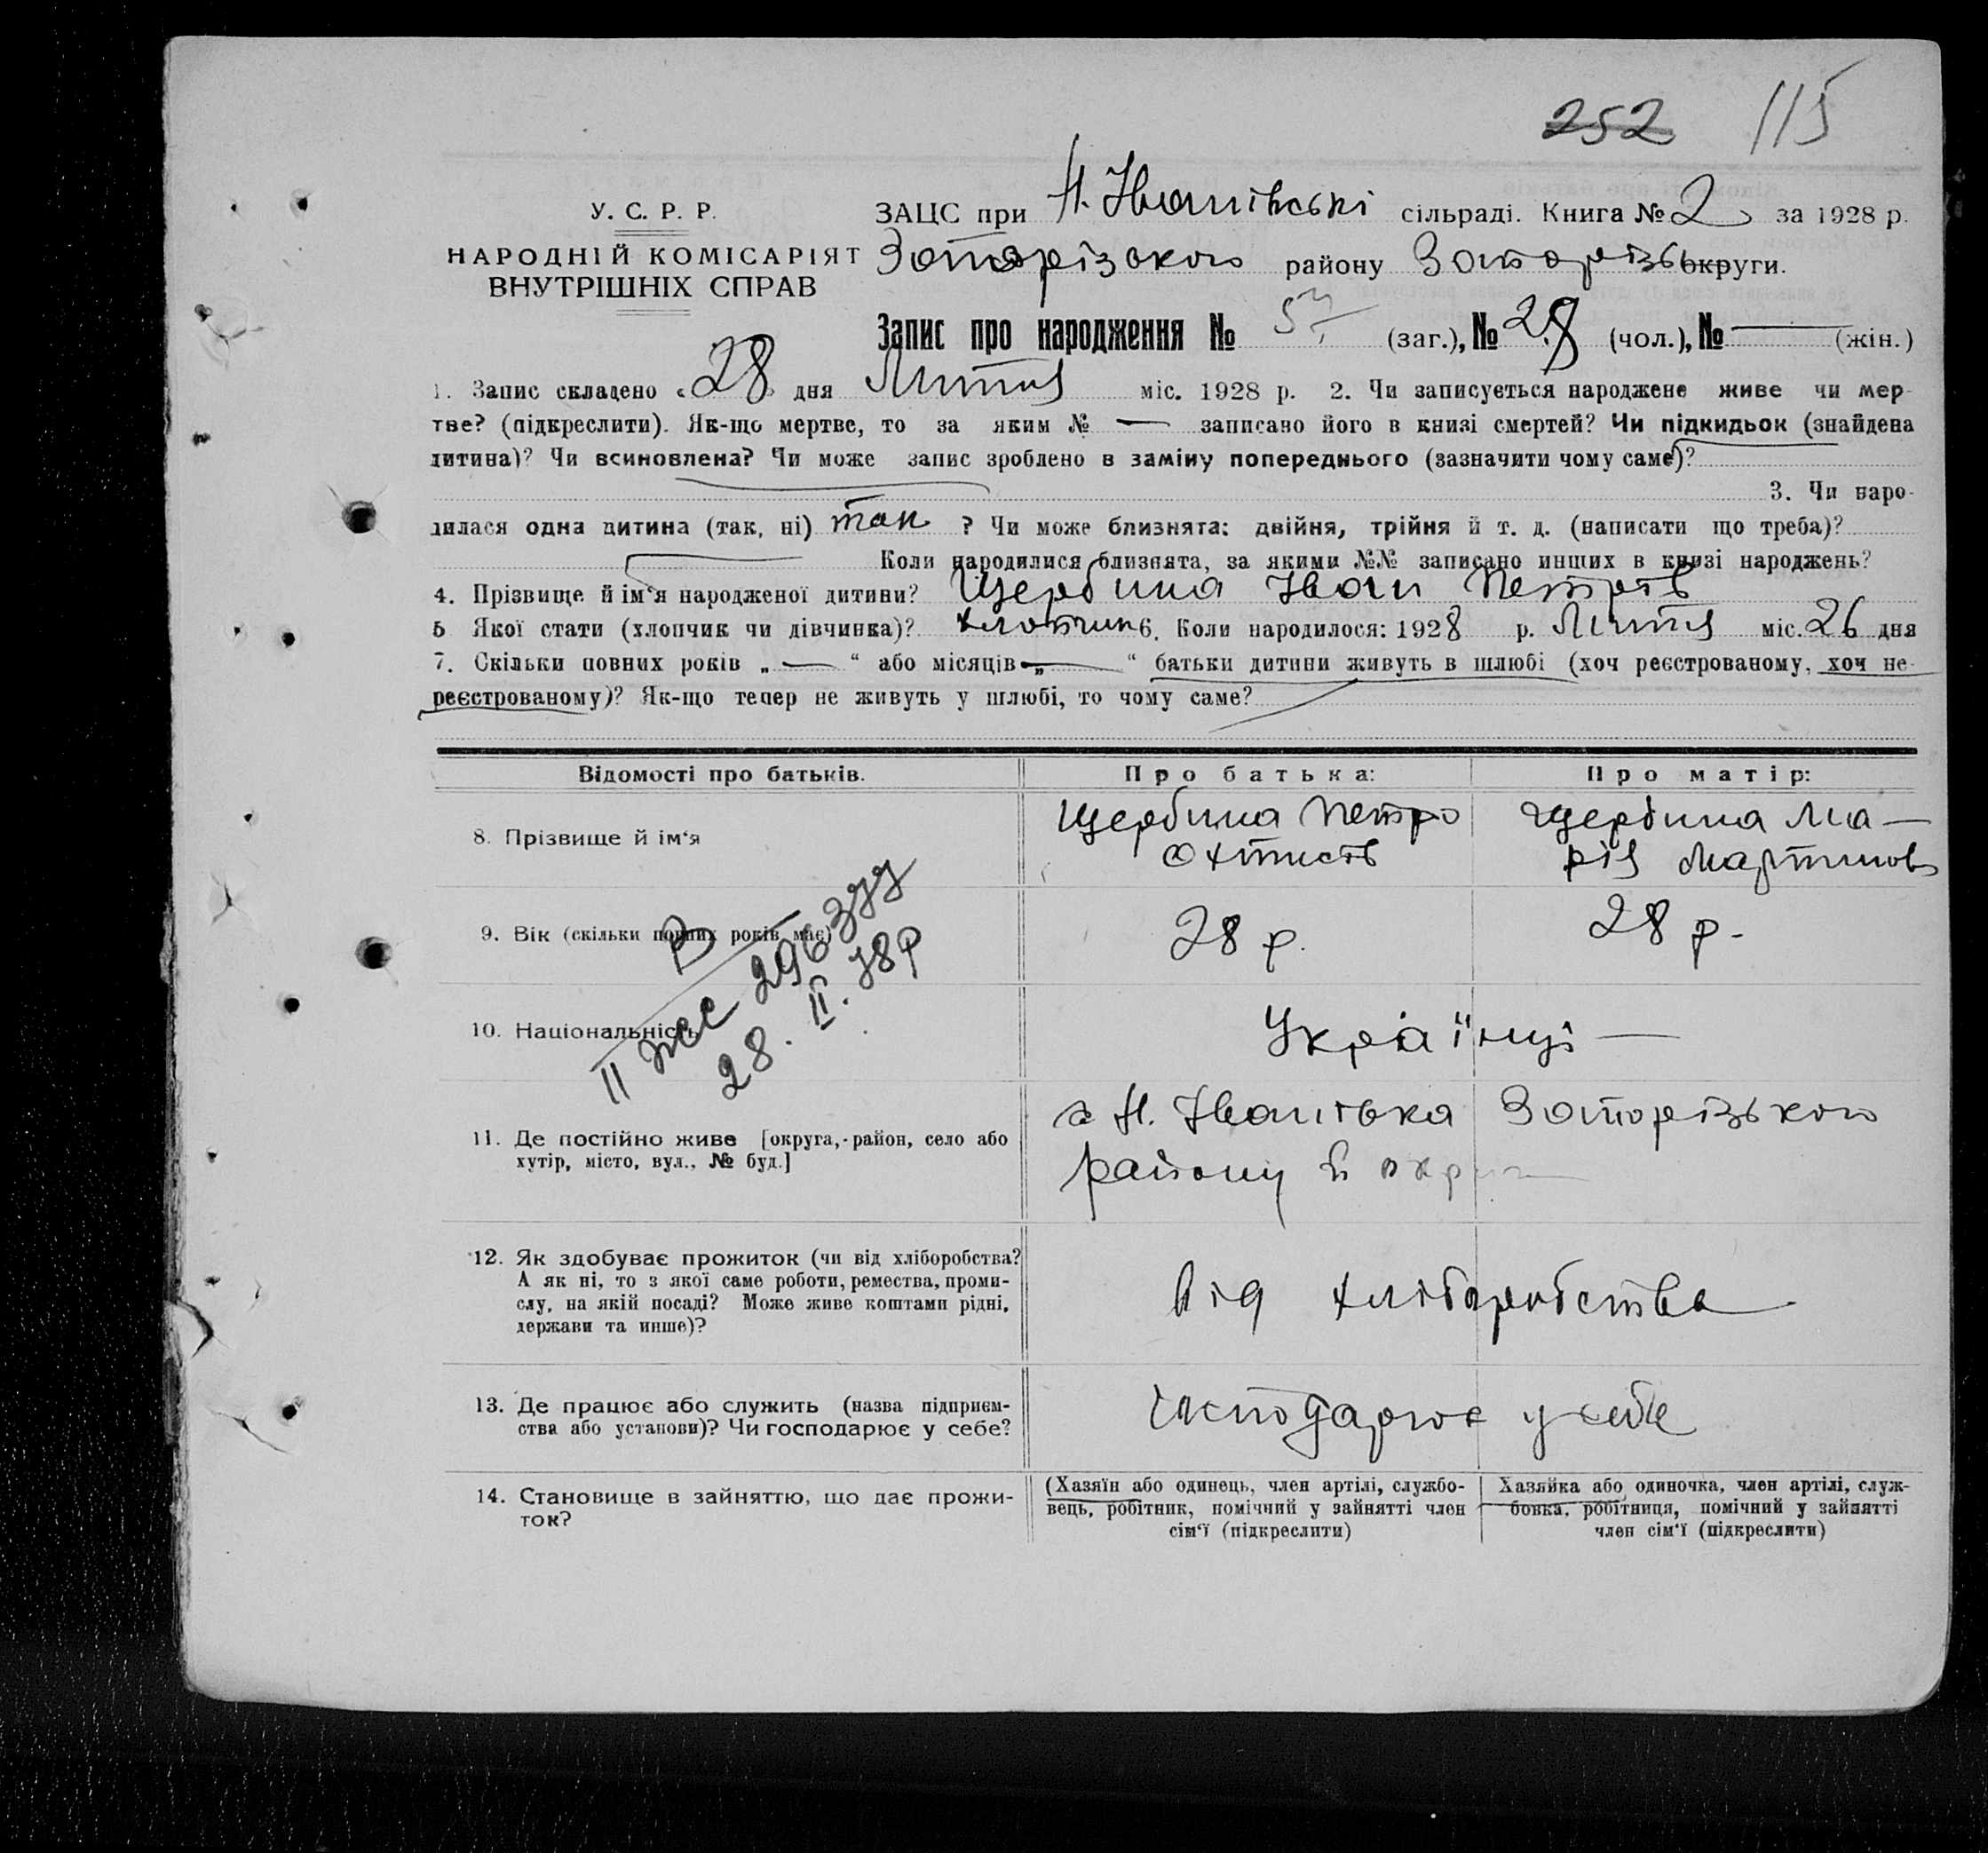 252 115
У. С. Р. Р.
НАРОДНІЙ КОМІСАРІЯТ
ВНУТРІШНІХ СПРАВ
ЗАЦС при Н. Іванівські сільраді. Книга № 2 за 1928 р.
Запорізького району Запорізьк округи.
Запис про народження № 57 (заг.), № 28 (чол.), № — (жін.)
1. Запис складено «28» дня Лютия міс. 1928 р. 2. Чи записується народжене живе чи мер-
тве? (підкреслити). Як-що мертве, то за яким № — записано його в книзі смертей? Чи підкидьок (знайдена
дитина)? Чи всиновлена? Чи може запис зроблено в заміну попереднього (зазначити чому саме)?
3. Чи наро-
дилася одна дитина (так, ні) так ? Чи може близнята: двійня, трійня й т. д. (написати що треба)?
Коли народилися близнята, за якими №№ записано инших в книзі народжень?
4. Прізвище й ім'я народженої дитини? Щербина Іван Петрів
5 Якої стати (хлопчик чи дівчинка)? хлопчик 6. Коли народилося: 1928 р. Лютия міс. 26 дня
7. Скільки повних років „ — “ або місяців „ — “ батьки дитини живуть в шлюбі (хоч реєстрованому, хоч не-
реєстрованому)? Як-що тепер не живуть у шлюбі, то чому саме?
Відомості про батьків. Про батька: Про матір:
8. Прізвище й ім'я
Щербина Петро
Щербина Ма-
рія Мартинов
9. Вік (скільки повних років має) 28 р. 28 р.
II 296377
28. II. 78р
10. Національність Українці —
11. Де постійно живе [округа, район, село або
хутір, місто, вул., № буд.]
с Н. Іванівка Запорізького
району й округи
12. Як здобуває прожиток (чи від хліборобства?
А як ні, то з якої саме роботи, ремества, проми-
слу, на якій посаді? Може живе коштами рідні,
держави та инше)?
Від хліборобства
13. Де працює або служить (назва підприєм-
ства або установи)? Чи господарює у себе?
господарює у себе
14. Становище в зайняттю, що дає прожи-
ток?
(Хазяїн або одинець, член артілі, службо-
вець, робітник, помічний у зайнятті член
сім'ї (підкреслити)
Хазяйка або одиночка, член артілі, служ-
бовка, робітниця, помічний у зайнятті
член сім'ї (підкреслити)